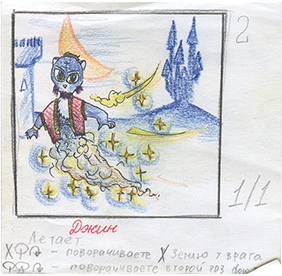 2
1/1
Джин
Летает
поворачиваете X Землю у врага
поворачиваете второй раз